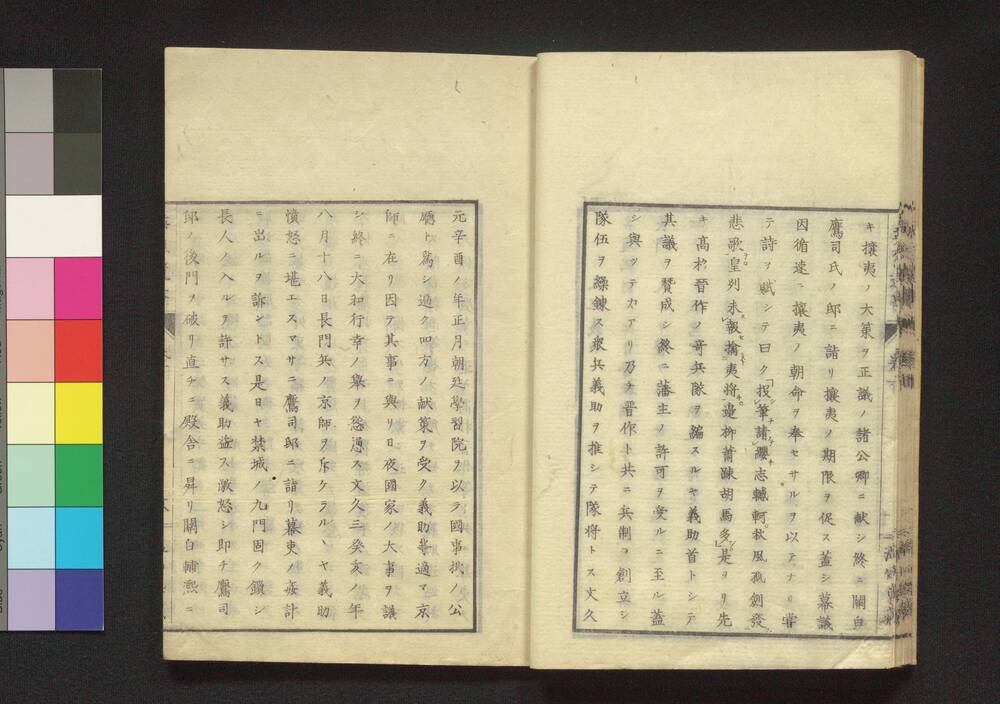 キ攘夷ノ大策ヲ正議ノ諸公卿ニ献シ終ニ關白
鷹司氏ノ邸ニ詣リ攘夷ノ期限ヲ促ス蓋シ幕議
因循速ニ攘夷ノ朝命ヲ奉セサルヲ以テナリ甞
テ詩ヲ賦シテ曰ク投筆請纓志轗軻秋風孤劍發
悲歌皇列未報擒夷将邉柳蕭踈胡馬多是ヨリ先
キ高杉晉作ノ奇兵隊ヲ編スルヤ義助首トシテ
其議ヲ賛成シ終ニ藩主ノ許可ヲ受ルニ至ル蓋
シ與ツテ力アリ乃チ晉作ト共ニ兵制ヲ創立シ
隊伍ヲ繰錬ス衆兵義助ヲ推シテ隊将トス文久
元辛酉ノ年正月朝廷學習院ヲ以テ國事掛ノ公
廳ト爲シ遍ク四方ノ献策ヲ受ク義助等適マ京
師ニ在リ因テ其事ニ與リ日夜國家ノ大事ヲ議
シ終ニ大和行幸ノ擧ヲ慫慂ス文久三癸亥ノ年
八月十八日長門兵ノ京師ヲ斥ケラルヽヤ義助
憤怒ニ堪エスマサニ鷹司邸ニ詣リ幕吏ノ姦計
ニ出ルヲ訴ントス是日ヤ禁城ノ九門固ク鎖シ
長人ノ入ルヲ許サス義助益ス激怒シ即チ鷹司
邸ノ後門ヲ破リ直チニ殿舎ニ昇リ關白輔熙ニ